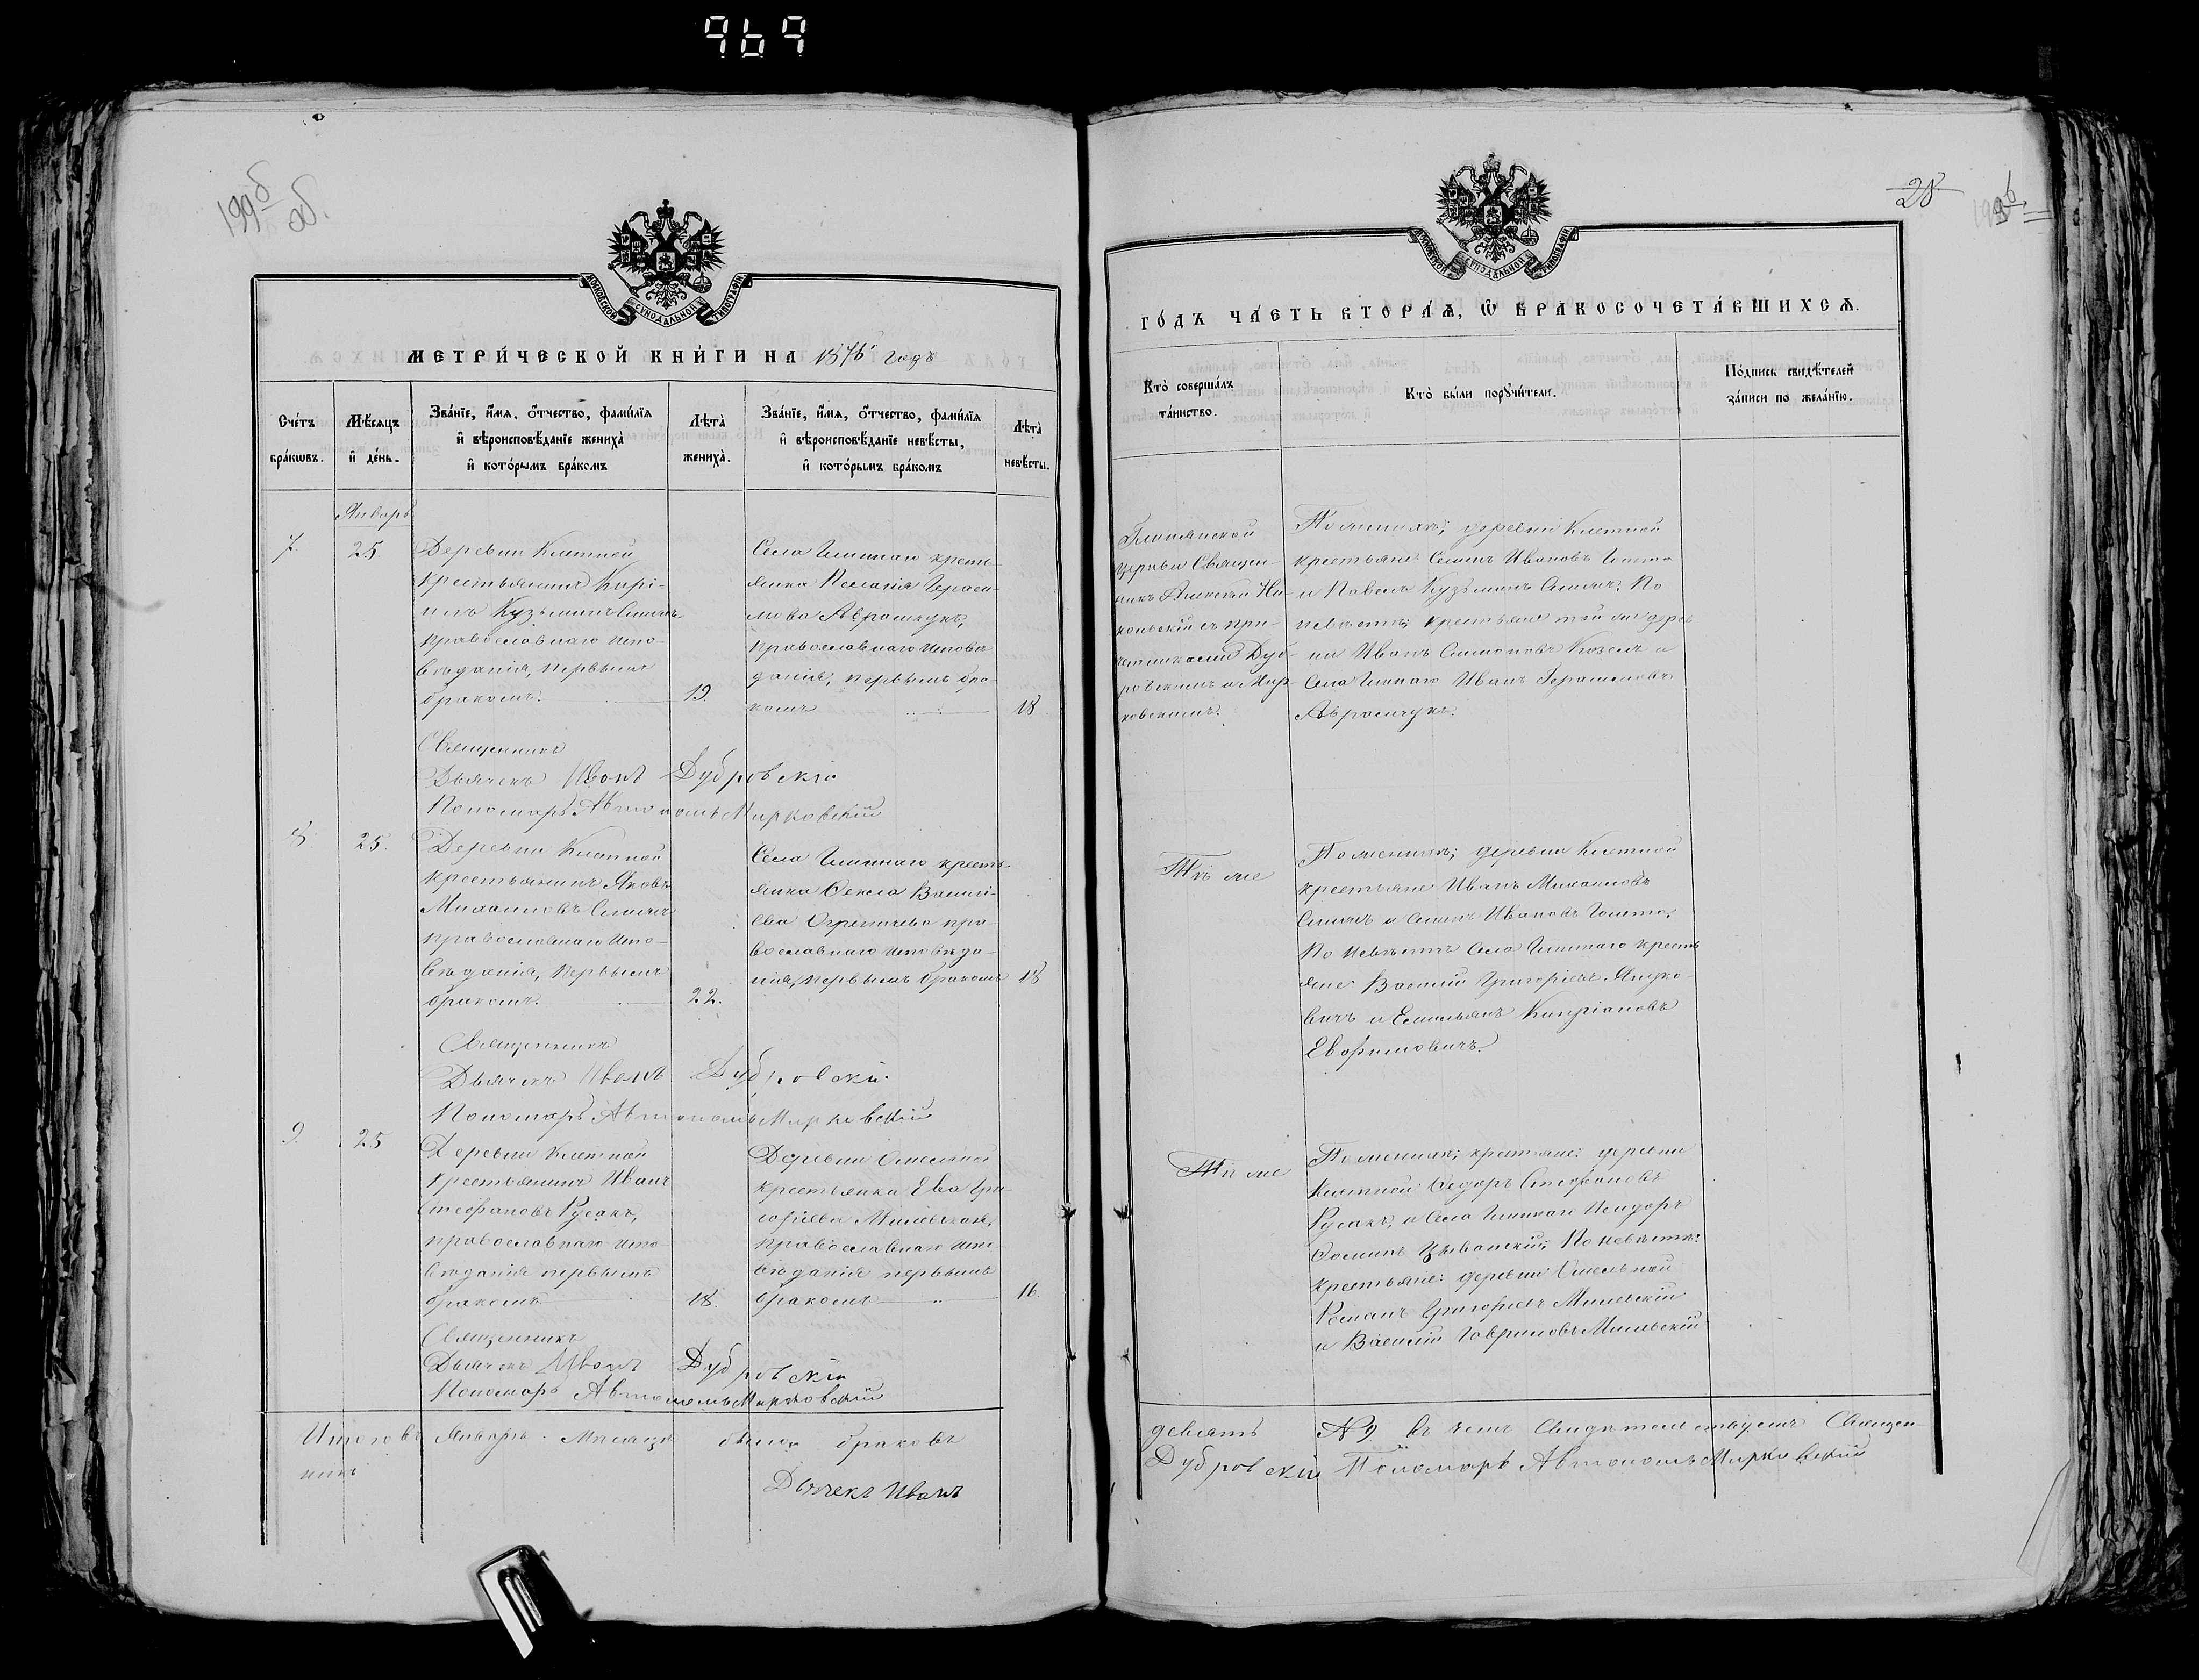 969
199б
об.
МОСКОВСКОЙ СѴНОДАЛЬНОЙ ТИПОГРАФІИ
МЕТРИ́ЧЕСКОЙ КНИ́ГИ НА 1876 годъ
Сче́тъ бра́кωвъ.
Мѣ́сяцъ и де́нь.
Зва́нїе, и́мя, ѻ҆́тчество, фами́лїя и вѣроисповѣ́данїе жениха̀ и кото́рымъ бра́комъ
Лѣ́та жениха̀.
Зва́нїе, и́мя, ѻ҆́тчество, фами́лїя и вѣроисповѣ́данїе невѣ́сты, и кото́рымъ бра́комъ
Лѣ́та невѣ́сты.
Январь
7.
25.
Деревни Клетной
крестьянинъ Кири-
илъ Кузьминъ
православнаго испо-
вѣданія, первымъ
бракомъ.
19.
Села кресть-
янка Пелагія Гераси-
мова Аврамчукъ,
православнаго исповѣ
данія, первымъ бра-
комъ
18
Священникъ
Дьячекъ Иванъ Дубровскій
Пономарь Автономъ Мирковскій
8.
25.
Деревни Клетной
крестьянинъ Яковъ
Михаиловъ
православнаго испо-
вѣданія, первымъ
бракомъ.
22.
Села кресть-
янка Фекла Васи́лі-
ева пра-
вославнаго исповѣда-
нія, первымъ бракомъ
18
Священникъ
Дьячекъ Иванъ Дубровскій
Пономарь Автономъ Мирковскій
9.
25
Деревни Клетной
крестьянинъ Иванъ
Стефановъ Русакъ,
православнаго испо-
вѣданія первымъ
бракомъ
18.
Деревни Омельной
крестьянка Ева Гри-
горіева Милевская,
православнаго испо-
вѣданія первымъ
бракомъ
16.
Священникъ
Дьячекъ Иванъ Дубровскій
Пономарь Автономъ Мирковскій
Итого въ Январѣ мѣсяцѣ было браковъ
никъ
Дьячекъ Иванъ
28
199б
МОСКОВСКОЙ СѴНОДАЛЬНОЙ ТИПОГРАФІИ
ГО́ДЪ ЧА́СТЬ ВТОРА́Ѧ, Ѽ БРАКОСОЧЕТА́ВШИХСѦ.
Кто̀ соверша́лъ та́инство.
Кто̀ бы́ли порꙋчи́тели.
По́дпись свидѣ́телей за́писи по жела́нїю.
церкви Священ-
никъ Алексѣй Ни-
кольскій съ при-
четниками Дуб-
ровскимъ и Мир-
ковскимъ.
По женихѣ; деревни Клетной
крестьяне Семенъ Ивановъ
и Павелъ Кузьминъ По
невѣстѣ; крестьяне той же дерев
ни Иванъ Симоновъ Козелъ и
села Иванъ Герасимовъ
Аврамчукъ.
Тѣ же
По женихѣ; деревни Клетной
крестьяне Иванъ Михаиловъ
и Семенъ Ивановъ
По невѣстѣ села кресть
яне Василій Григоріевъ Януко-
вичъ и Емельянъ Кипріановъ
Евфимовичъ.
Тѣ же
По женихѣ; крестьяне: деревни
Клетной Федоръ Стефановъ
Русакъ, и села Исидоръ
Фоминъ По невѣстѣ:
крестьяне: деревни Омельной
Романъ Григорьевъ Милевскій
и Василій Гавриловъ Милевскій
девять № 9 въ чемъ свидѣтельствуемъ Священ-
Дубровскій Пономарь Автономъ Мирковскій